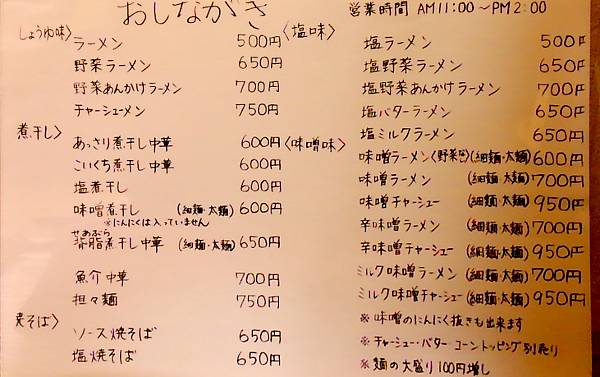 おしながき
営業時間 AM11:00～PM2:00
しょうゆ味〉
ラーメン 500円
野菜ラーメン 650円
野菜あんかけラーメン 700円
チャーシューメン 750円
煮干し〉
あっさり煮干し中華 600円
こいくち煮干し中華 600円
塩煮干し 600円
味噌煮干し (細麺・太麺) 600円
※にんにくは入っていません
せあぶら
背脂煮干し中華 (細麺・太麺) 650円
魚介中華 700円
担々麺 750円
焼そば〉
ソース焼そば 650円
塩焼そば 650円
〈塩味〉
塩ラーメン 500円
塩野菜ラーメン 650円
塩野菜あんかけラーメン 700円
塩バターラーメン 650円
塩ミルクラーメン 650円
〈味噌味〉
味噌ラーメン(野菜) (細麺・太麺) 600円
味噌ラーメン (細麺・太麺) 700円
味噌チャーシュー (細麺・太麺) 950円
辛味噌ラーメン (細麺・太麺) 700円
辛味噌チャーシュー (細麺・太麺) 950円
ミルク味噌ラーメン (細麺・太麺) 700円
ミルク味噌チャーシュー (細麺・太麺) 950円
※味噌のにんにく抜きも出来ます
※チャーシュー・バター・コーントッピング別売り
※麺の大盛り100円増し